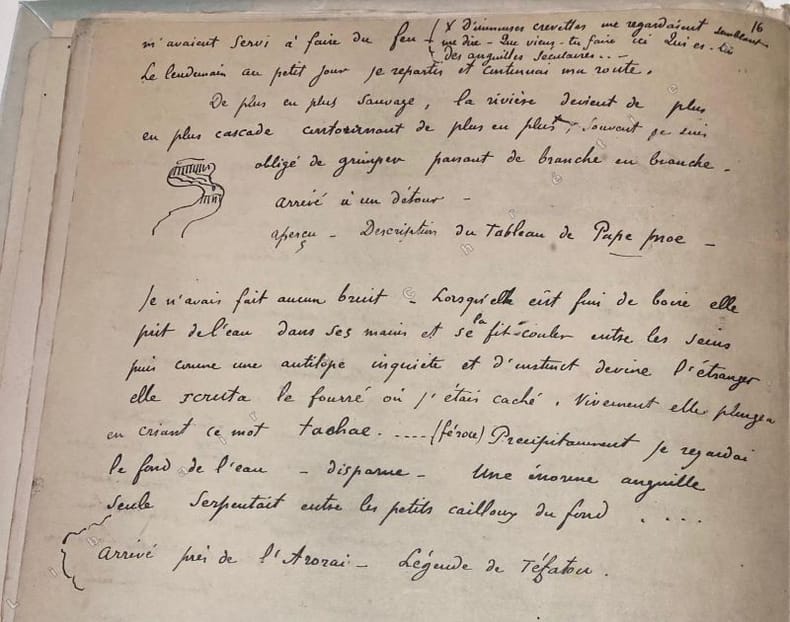 16
m'avaient servi à faire du feu + { X D'immenses crevettes me regardaient semblant
me dire - Que viens-tu faire ici Qui es-tu
Des anguilles séculaires...-
Le lendemain au petit jour je repartis et continuai ma route.
De plus en plus sauvage, la rivière devient de plus
en plus cascade de plus en plus, souvent je suis
obligé de grimper passant de branche en branche.
Arrivé à un détour -
aperçu - Description du tableau de Pape moe -
Je n'avais fait aucun bruit - Lorsqu'elle eût fini de boire elle
prit de l'eau dans ses mains et se la fit couler entre les seins
puis comme une antilope inquiète et d'instinct devine l'étranger
elle scruta le fourré où j'étais caché. Vivement elle plongea
en criant ce mot taehae..... (féroce) Précipitamment je regardai
le fond de l'eau - disparue - Une énorme anguille
seule serpentait entre les petits cailloux du fond ....
Arrivé près de l'Arorai - Légende de Téfatou.